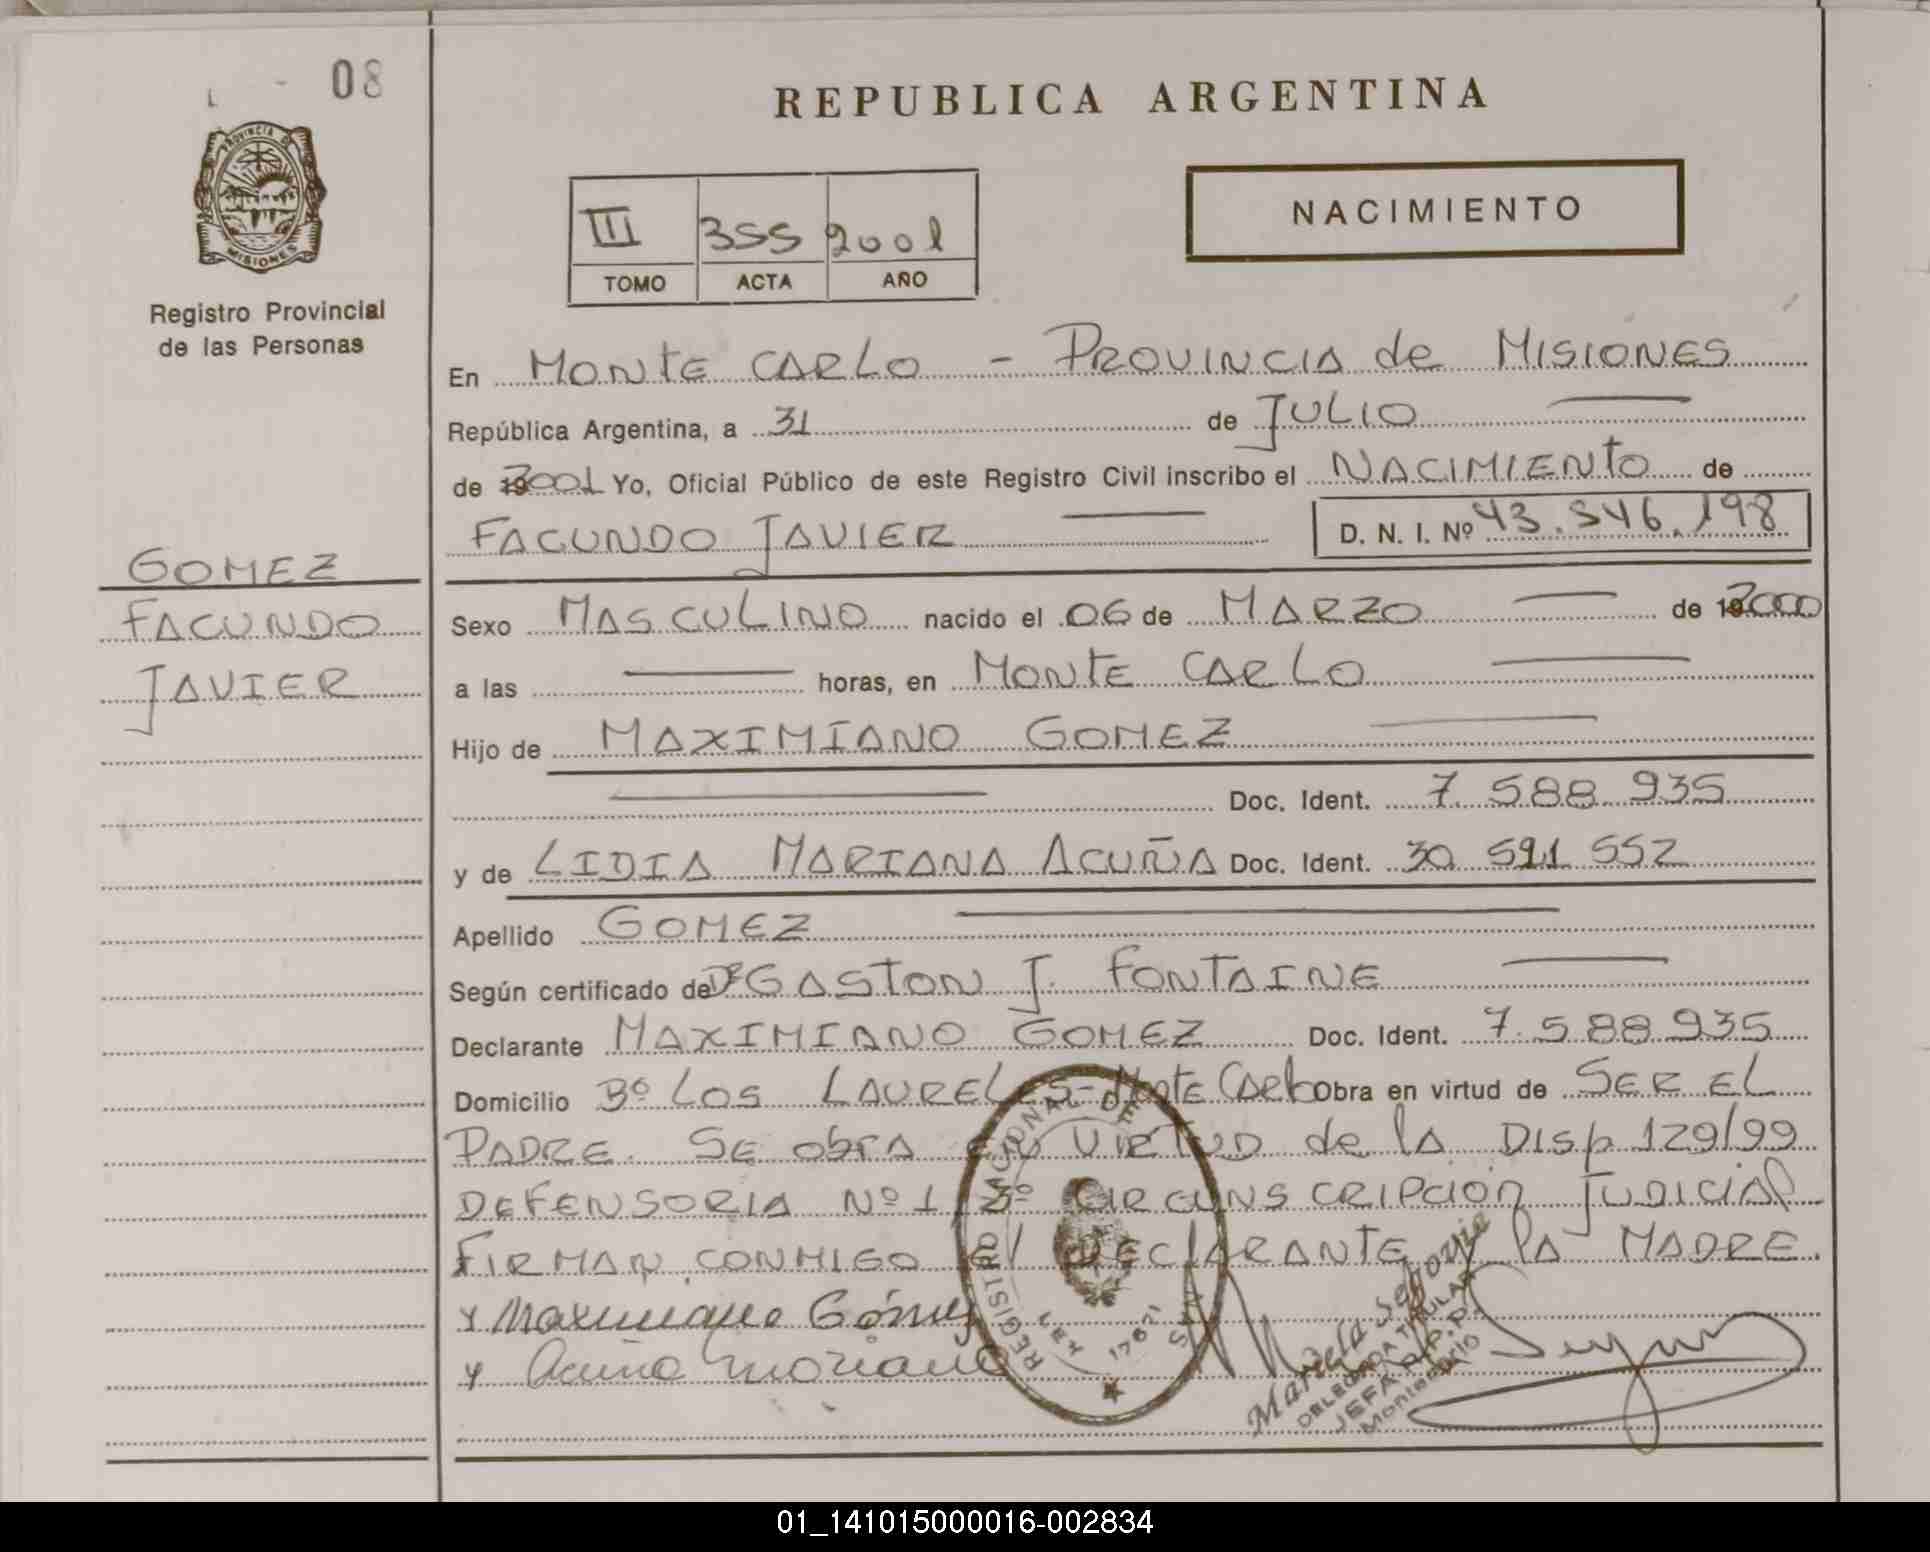 08
REPUBLICA ARGENTINA
PROVINCIA DE
MISIONES
Registro Provincial
de las Personas
III 355 2001
TOMO ACTA AÑO
NACIMIENTO
En MONTE CARLO - PROVINCIA de MISIONES
República Argentina, a 31 de JULIO
de 2001 Yo, Oficial Público de este Registro Civil inscribo el NACIMIENTO de
FACUNDO JAVIER D. N. I. Nº 43.346.198
GOMEZ
FACUNDO
JAVIER
Sexo MASCULINO nacido el 06 de MARZO de 2000
a las horas, en MONTE CARLO
Hijo de MAXIMIANO GOMEZ
Doc. Ident. 7.588.935
y de LIDIA MARIANA ACUÑA Doc. Ident. 30 591 552
Apellido GOMEZ
Según certificado de Dr GASTON J. FONTAINE
Declarante MAXIMIANO GOMEZ Doc. Ident. 7.588.935
Domicilio Bº LOS LAURELES - Monte CARLO Obra en virtud de SER EL
PADRE. SE obRA EN VIRTUD de lA DISp 129/99
DEFENSORIA Nº 1, 3º CIRCUNSCRIPCION JUDICIAL
FIRMAN CONMIGO El DEClARANTE Y lA MADRE.
x Maximiano Gómez
y Acuña Moriana
REGISTRO NACIONAL DE
17671
Mariela Segovia
DELEGADA TITULAR
JEFA R.P.P.
Montecarlo
01_141015000016-002834